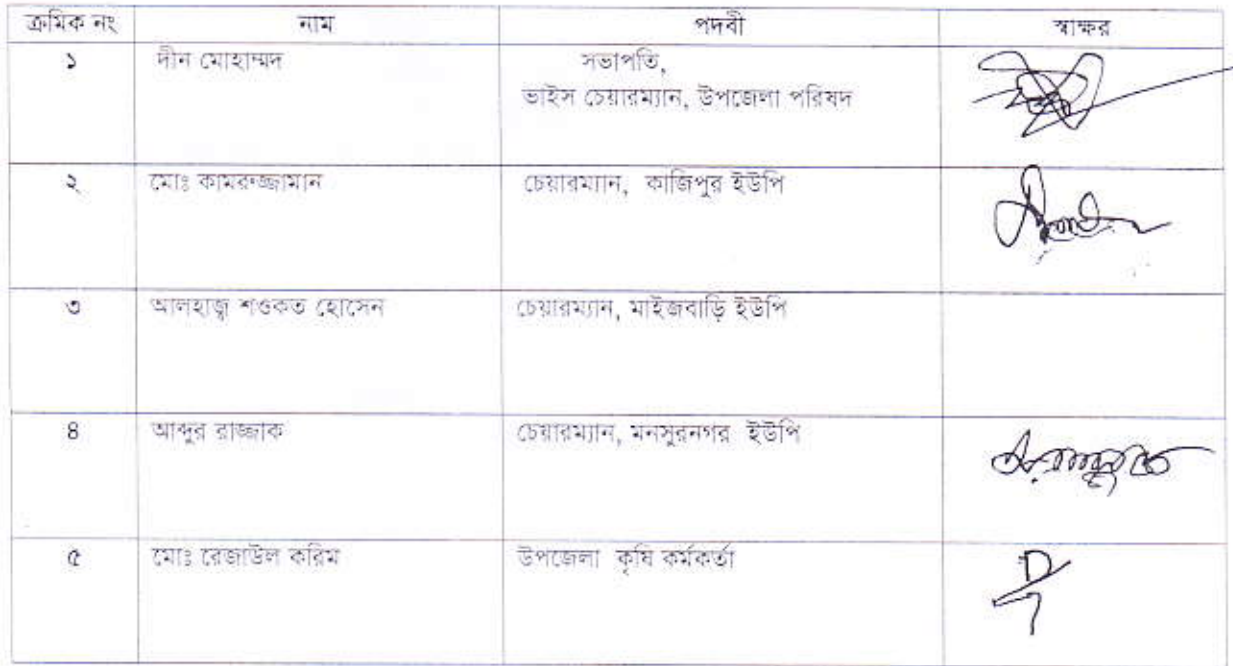 ক্রমিক নং নাম পদবী স্বাক্ষর
১ দীন মোহাম্মদ সভাপতি,
ভাইস চেয়ারম্যান, উপজেলা পরিষদ
২ মোঃ কামরুজ্জামান চেয়ারম্যান, কাজিপুর ইউপি
৩ আলহাজ্ব শওকত হোসেন চেয়ারম্যান, মাইজবাড়ি ইউপি
৪ আব্দুর রাজ্জাক চেয়ারম্যান, মনসুরনগর ইউপি
৫ মোঃ রেজাউল করিম উপজেলা কৃষি কর্মকর্তা